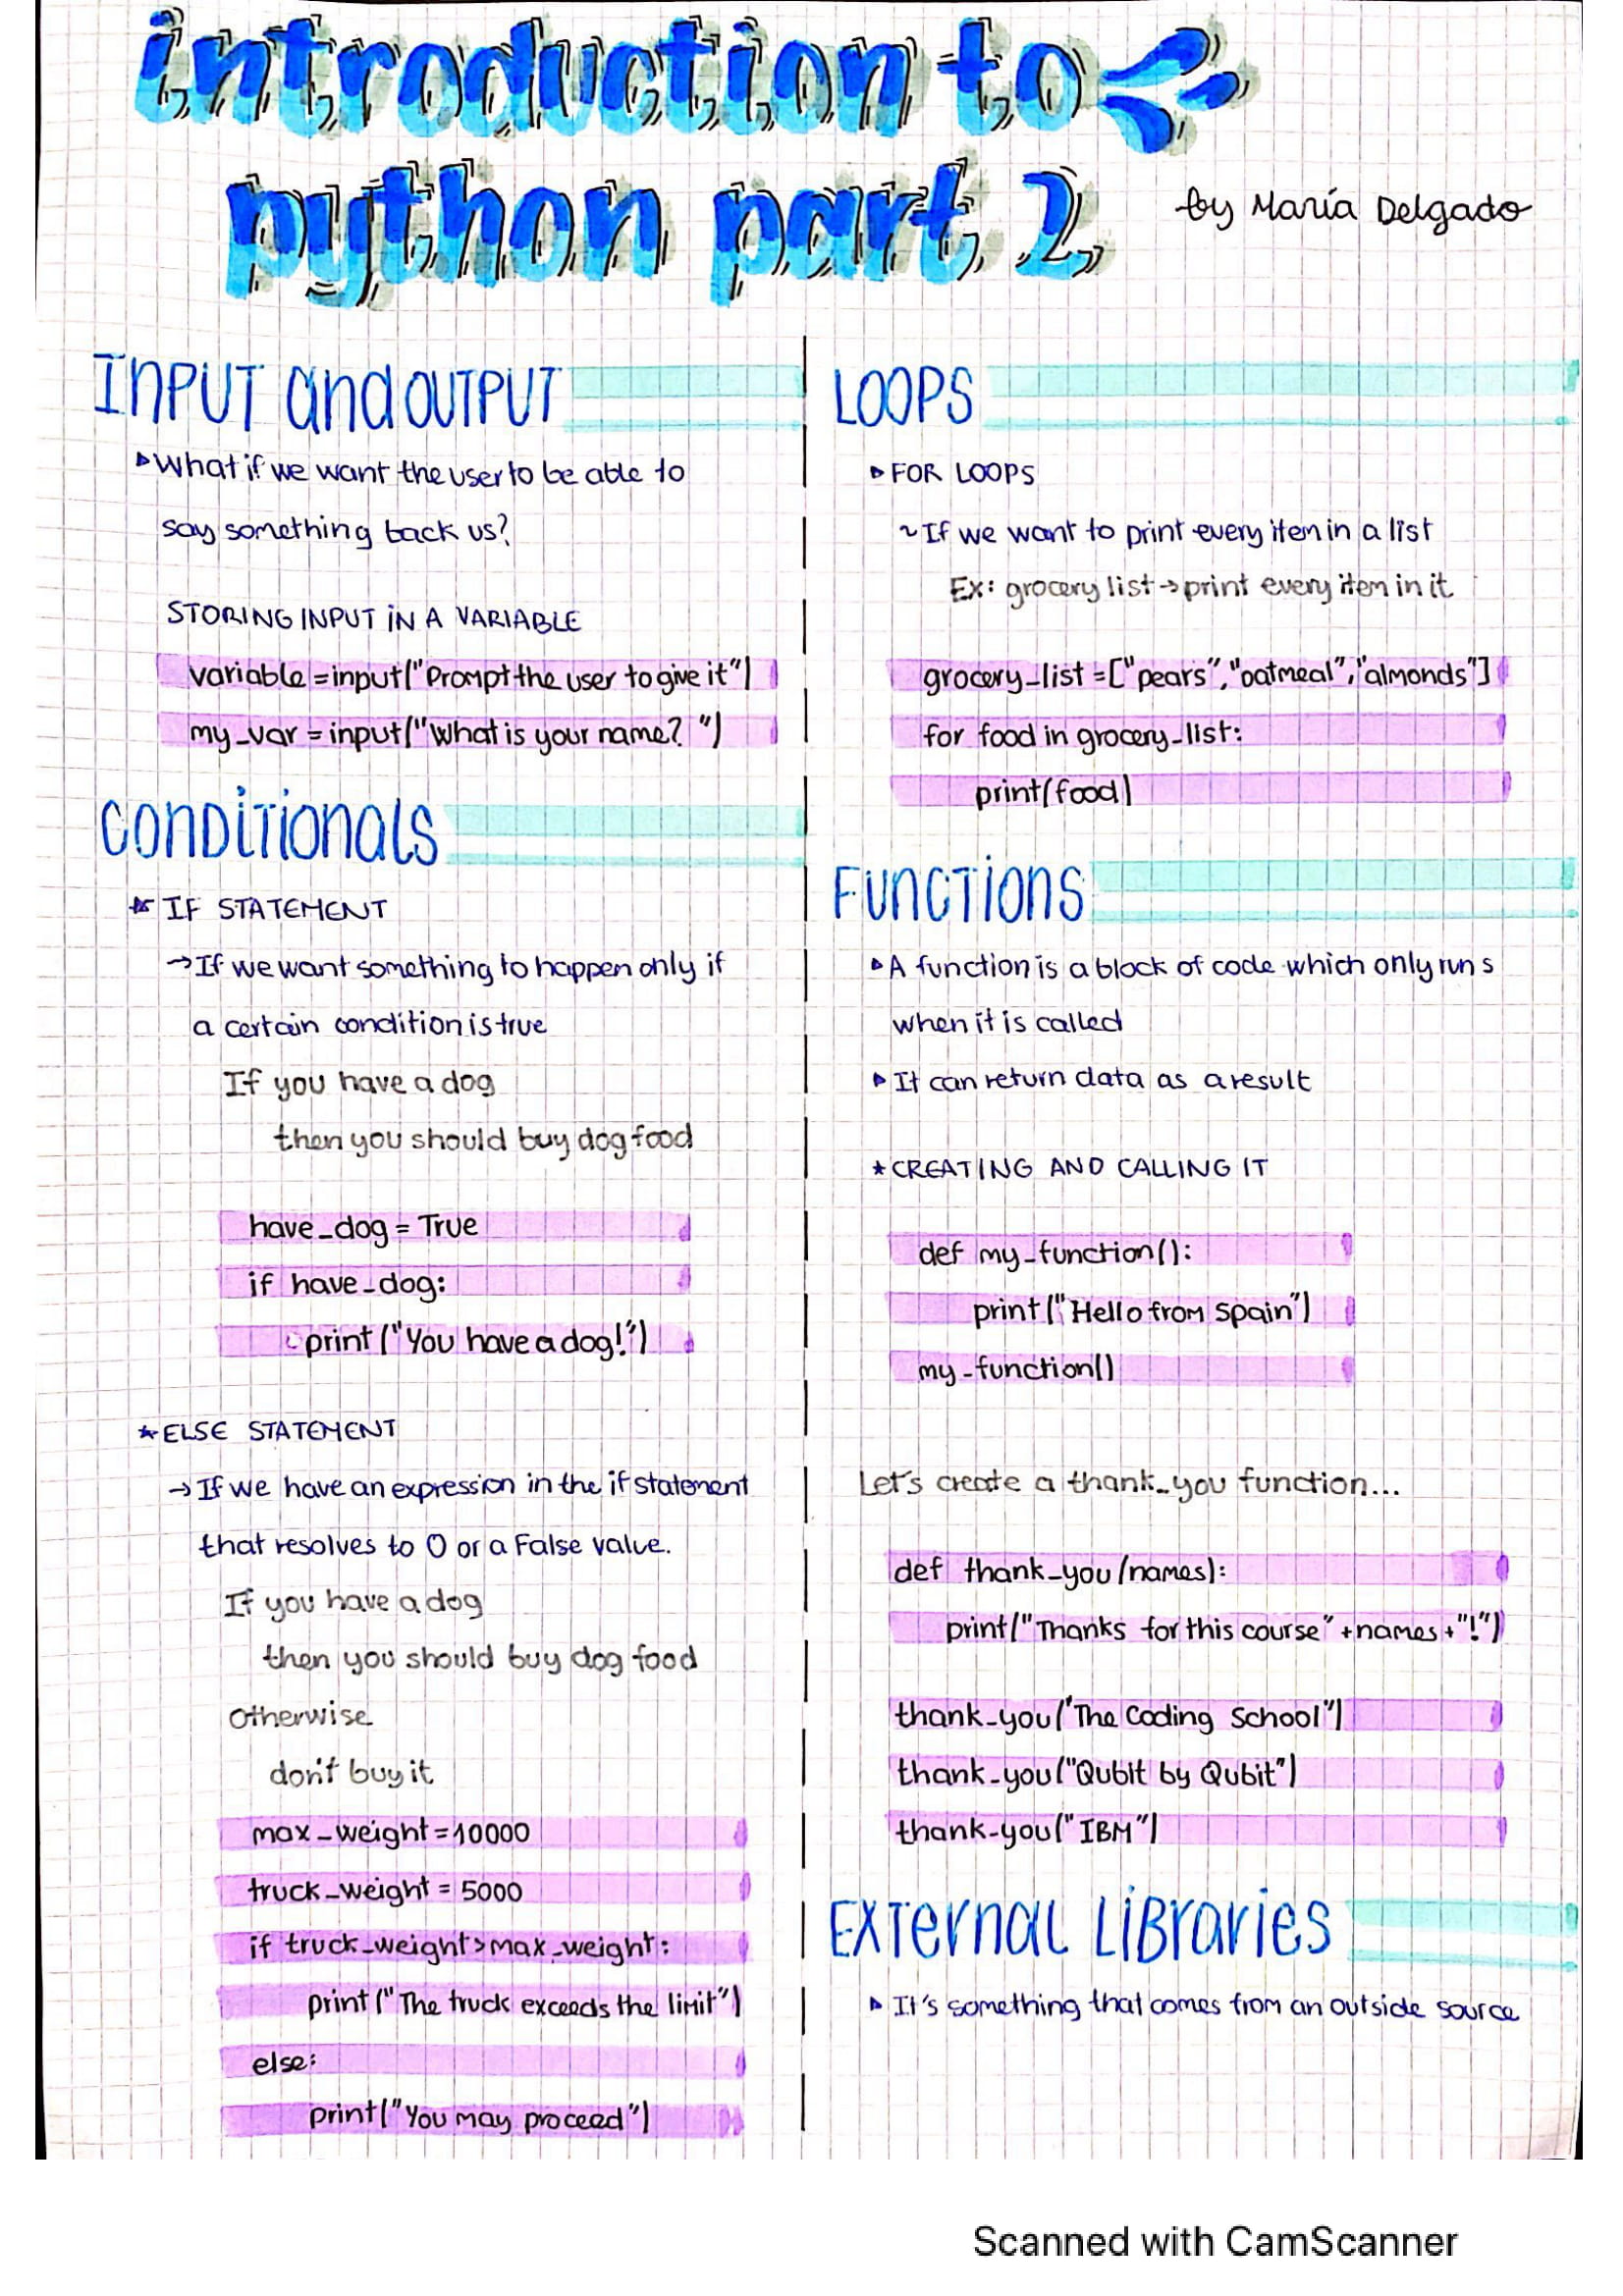 introduction to
python part 2
by María Delgado
INPUT and OUTPUT
▸What if we want the user to be able to
say something back us?
STORING INPUT IN A VARIABLE
variable=input("Prompt the user to give it")
my_var = input("What is your name? ")
CONDITIONALS
☆ IF STATEMENT
→If we want something to happen only if
a certain condition is true
If you have a dog
then you should buy dog food
have_dog = True
if have_dog:
print ("You have a dog!")
★ELSE STATEMENT
→If we have an expression in the if statement
that resolves to 0 or a False value.
If you have a dog
then you should buy dog food
otherwise
don't buy it
max_weight=10000
truck_weight = 5000
if truck_weight>max_weight:
print ("The truck exceeds the limit")
else:
print("You may proceed")
LOOPS
▸FOR LOOPS
~If we want to print every item in a list
Ex: grocery list→print every item in it
grocery_list =["pears","oatmeal","almonds"]
for food in grocery_list:
print(food)
FUNCTIONS
▸A function is a block of code which only runs
when it is called
▸It can return data as a result
★CREATING AND CALLING IT
def my_function():
print ("Hello from Spain")
my_function()
Let's create a thank_you function...
def thank_you(names):
print("Thanks for this course"+names+"!")
thank_you("The Coding School")
thank_you("Qubit by Qubit")
thank_you("IBM")
EXTERNAL LIBRARIES
▸It's something that comes from an outside source
Scanned with CamScanner